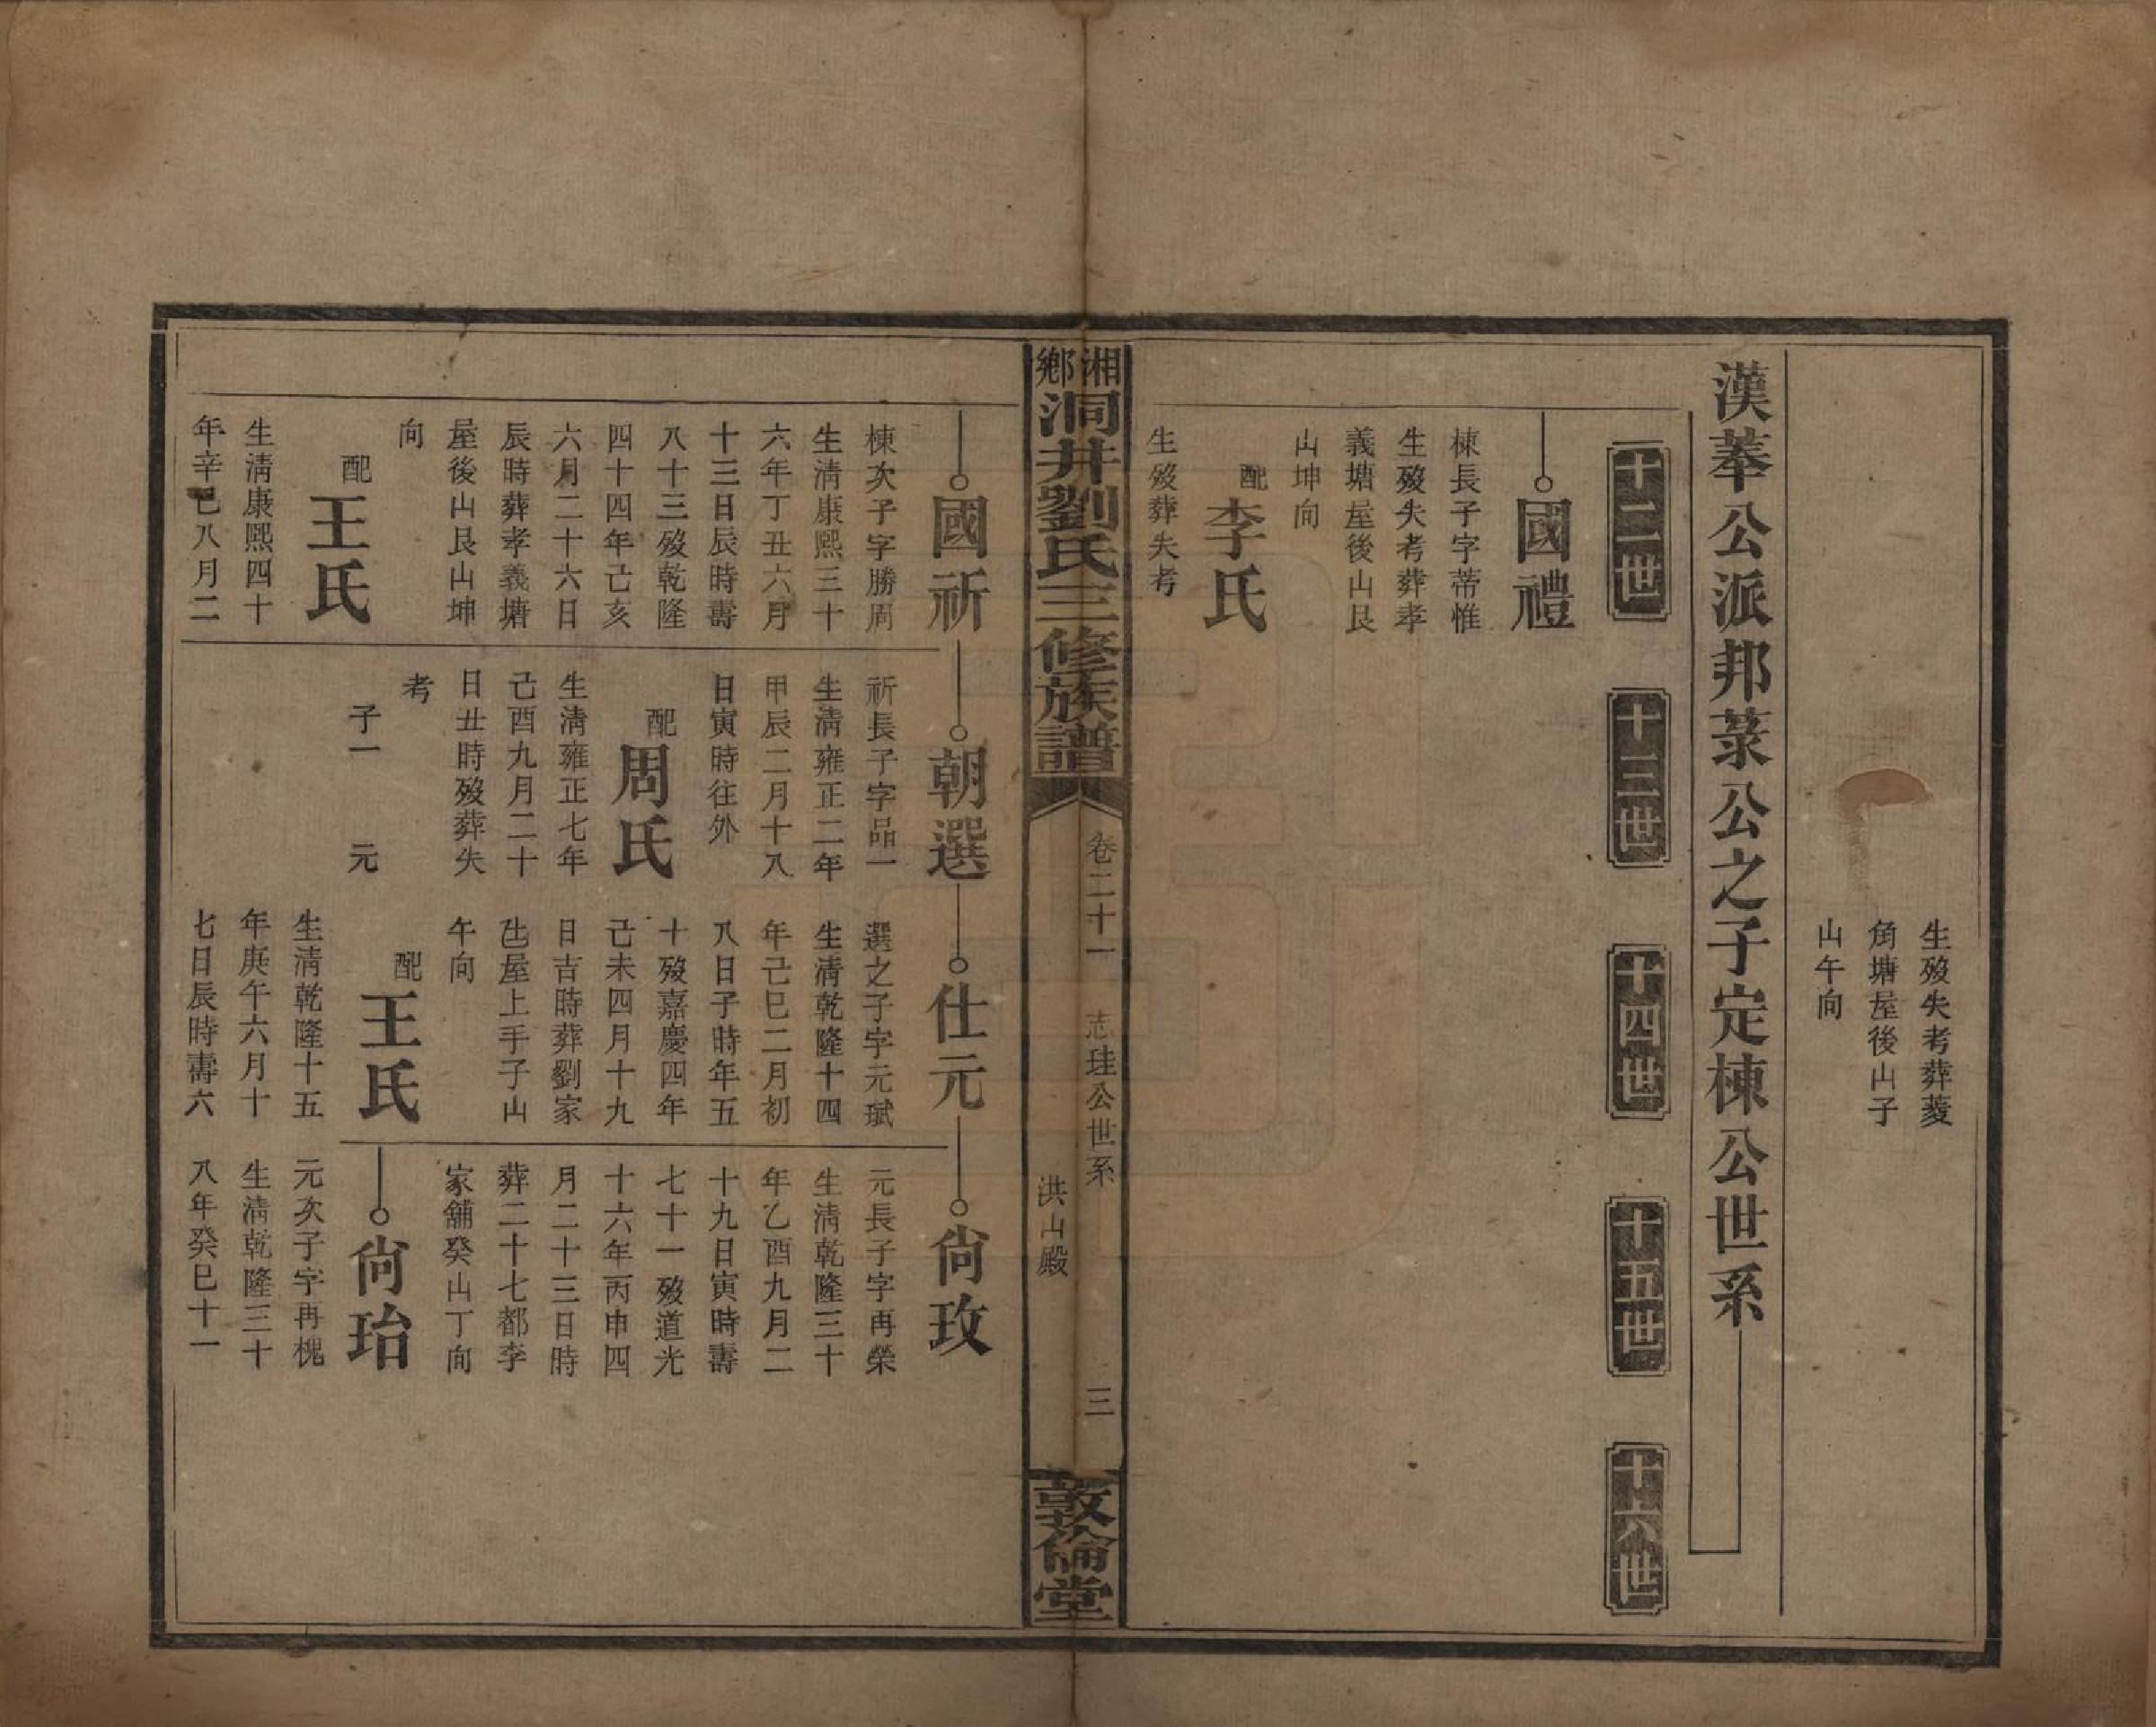 生歿失考葬菱
角塘屋後山子
山午向
漢菶公派邦菉公之子定棟公世系
十二世
十三世
十四世
十五世
十六世
國禮
棟長子字蒂惟
生歿失考葬孝
義塘屋後山艮
山坤向
配李氏
生歿葬失考
湘鄉洞井劉氏三修族譜
卷二十一
志珪公世系
洪山殿
三
敦倫堂
國祈
棟次子字勝周
生清康熙三十
六年丁丑六月
十三日辰時壽
八十三歿乾隆
四十四年己亥
六月二十六日
辰時葬孝義塘
屋後山艮山坤
向
配王氏
生清康熙四十
年辛巳八月二
朝選
祈長子字品一
生清雍正二年
甲辰二月十八
日寅時往外
配周氏
生清雍正七年
己酉九月二十
日丑時歿葬失
考
子一 元
仕元
選之子字元斌
生清乾隆十四
年己巳二月初
八日子時年五
十歿嘉慶四年
己未四月十九
日吉時葬劉家
屋上手子山
午向
配王氏
生清乾隆十五
年庚午六月十
七日辰時壽六
尙玫
元長子字再榮
生清乾隆三十
年乙酉九月二
十九日寅時壽
七十一歿道光
十六年丙申四
月二十三日時
葬二十七都李
家舖癸山丁向
尙珆
元次子字再槐
生清乾隆三十
八年癸巳十一